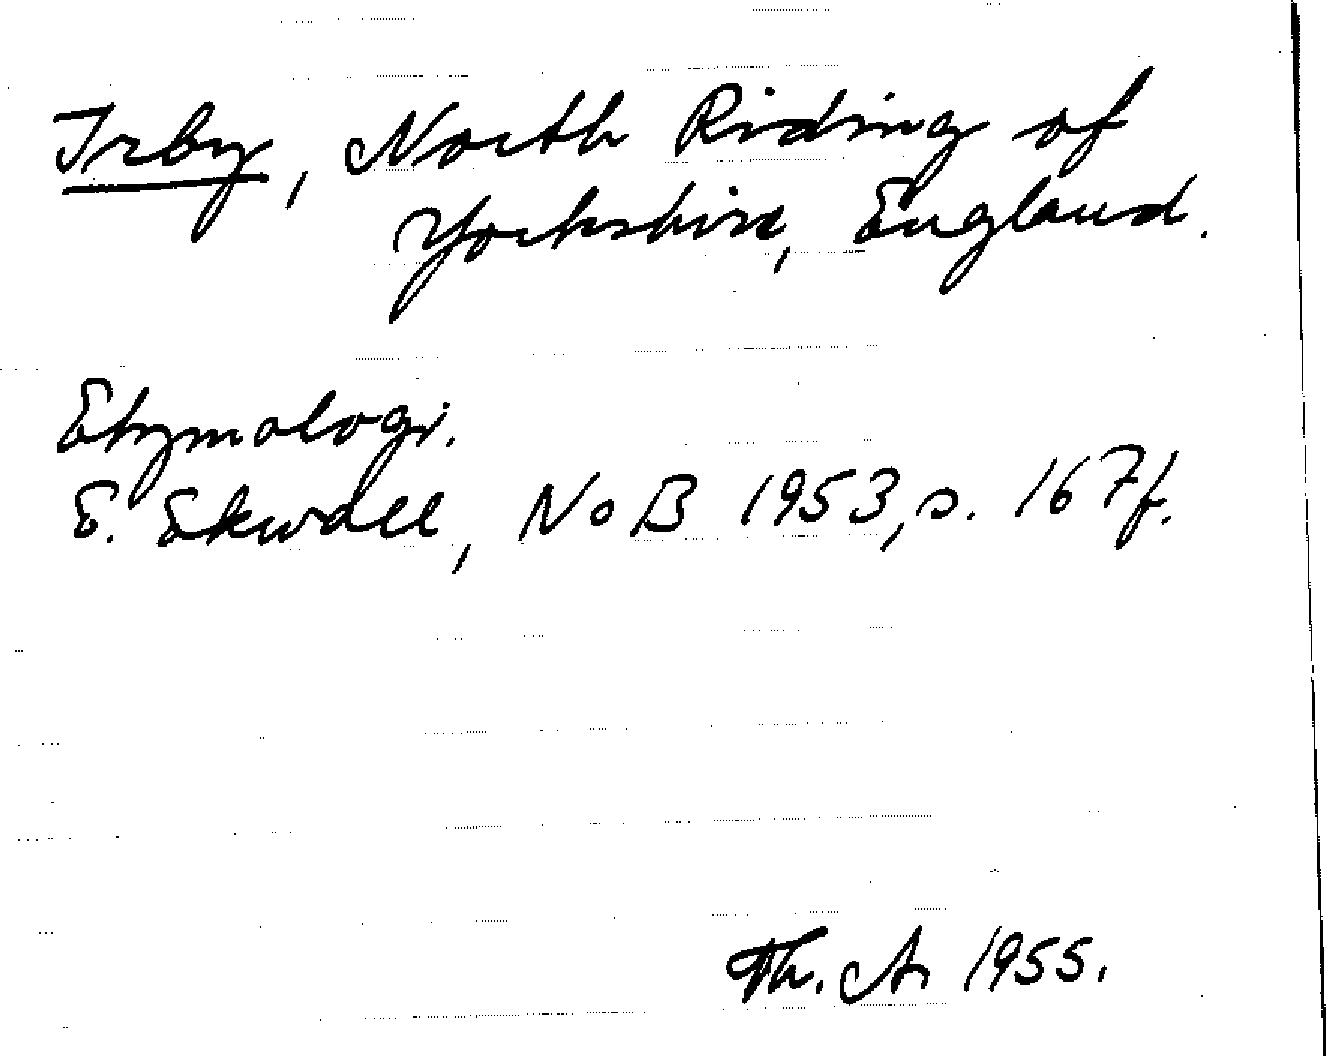 Irby, North Riding of
Yorkshire, England.
Etymologi.
E. Ekwall, NoB 1953, s. 167f.
Th. A. 1955.